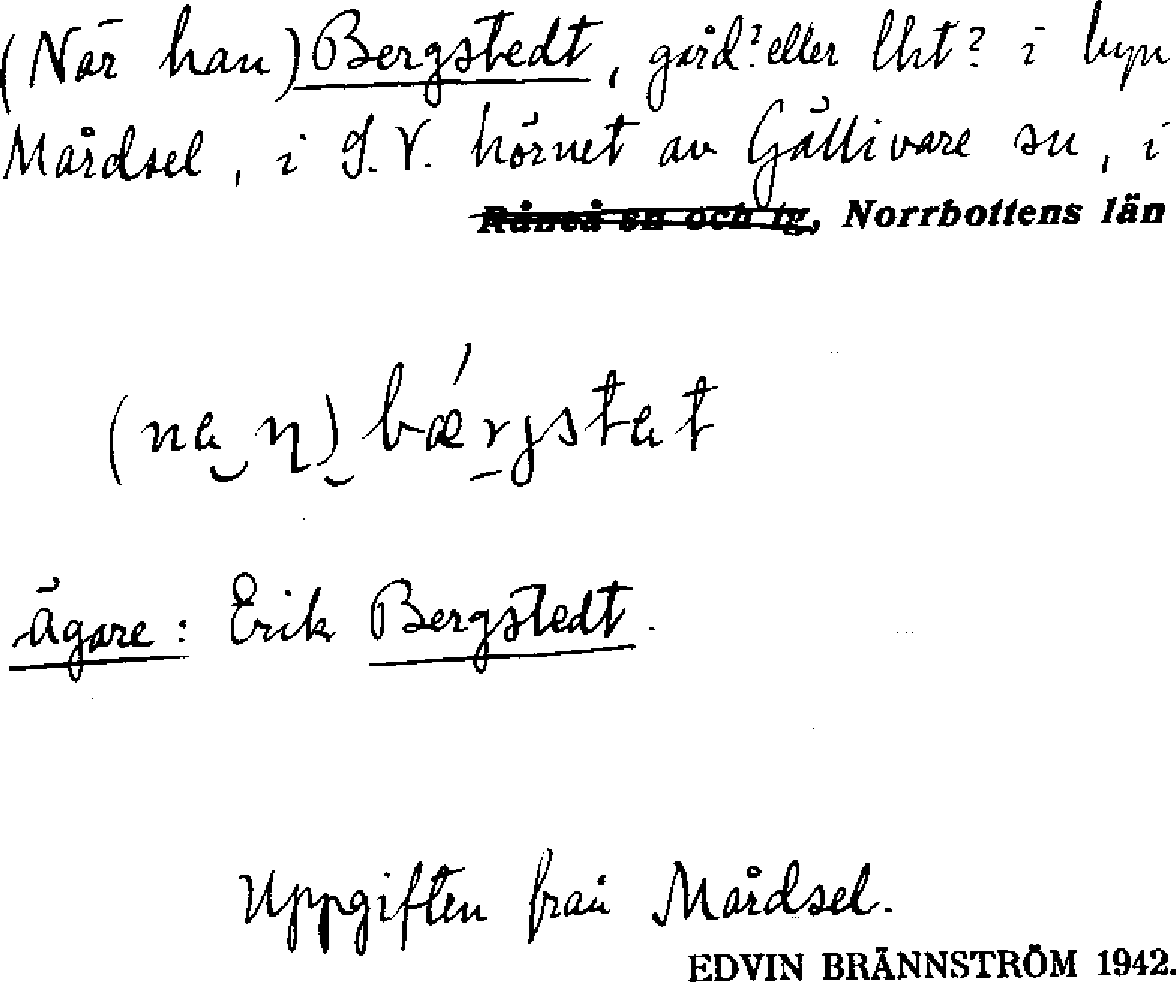 (När han) Bergstedt, gård? eller lht? i byn
Mårdsel, i S.V. hörnet av Gällivare sn, i
Råneå sn och tg, Norrbottens län
(na n) bærgstet
ägare: Erik Bergstedt.
Uppgiften från Mårdsel.
EDVIN BRÄNNSTRÖM 1942.